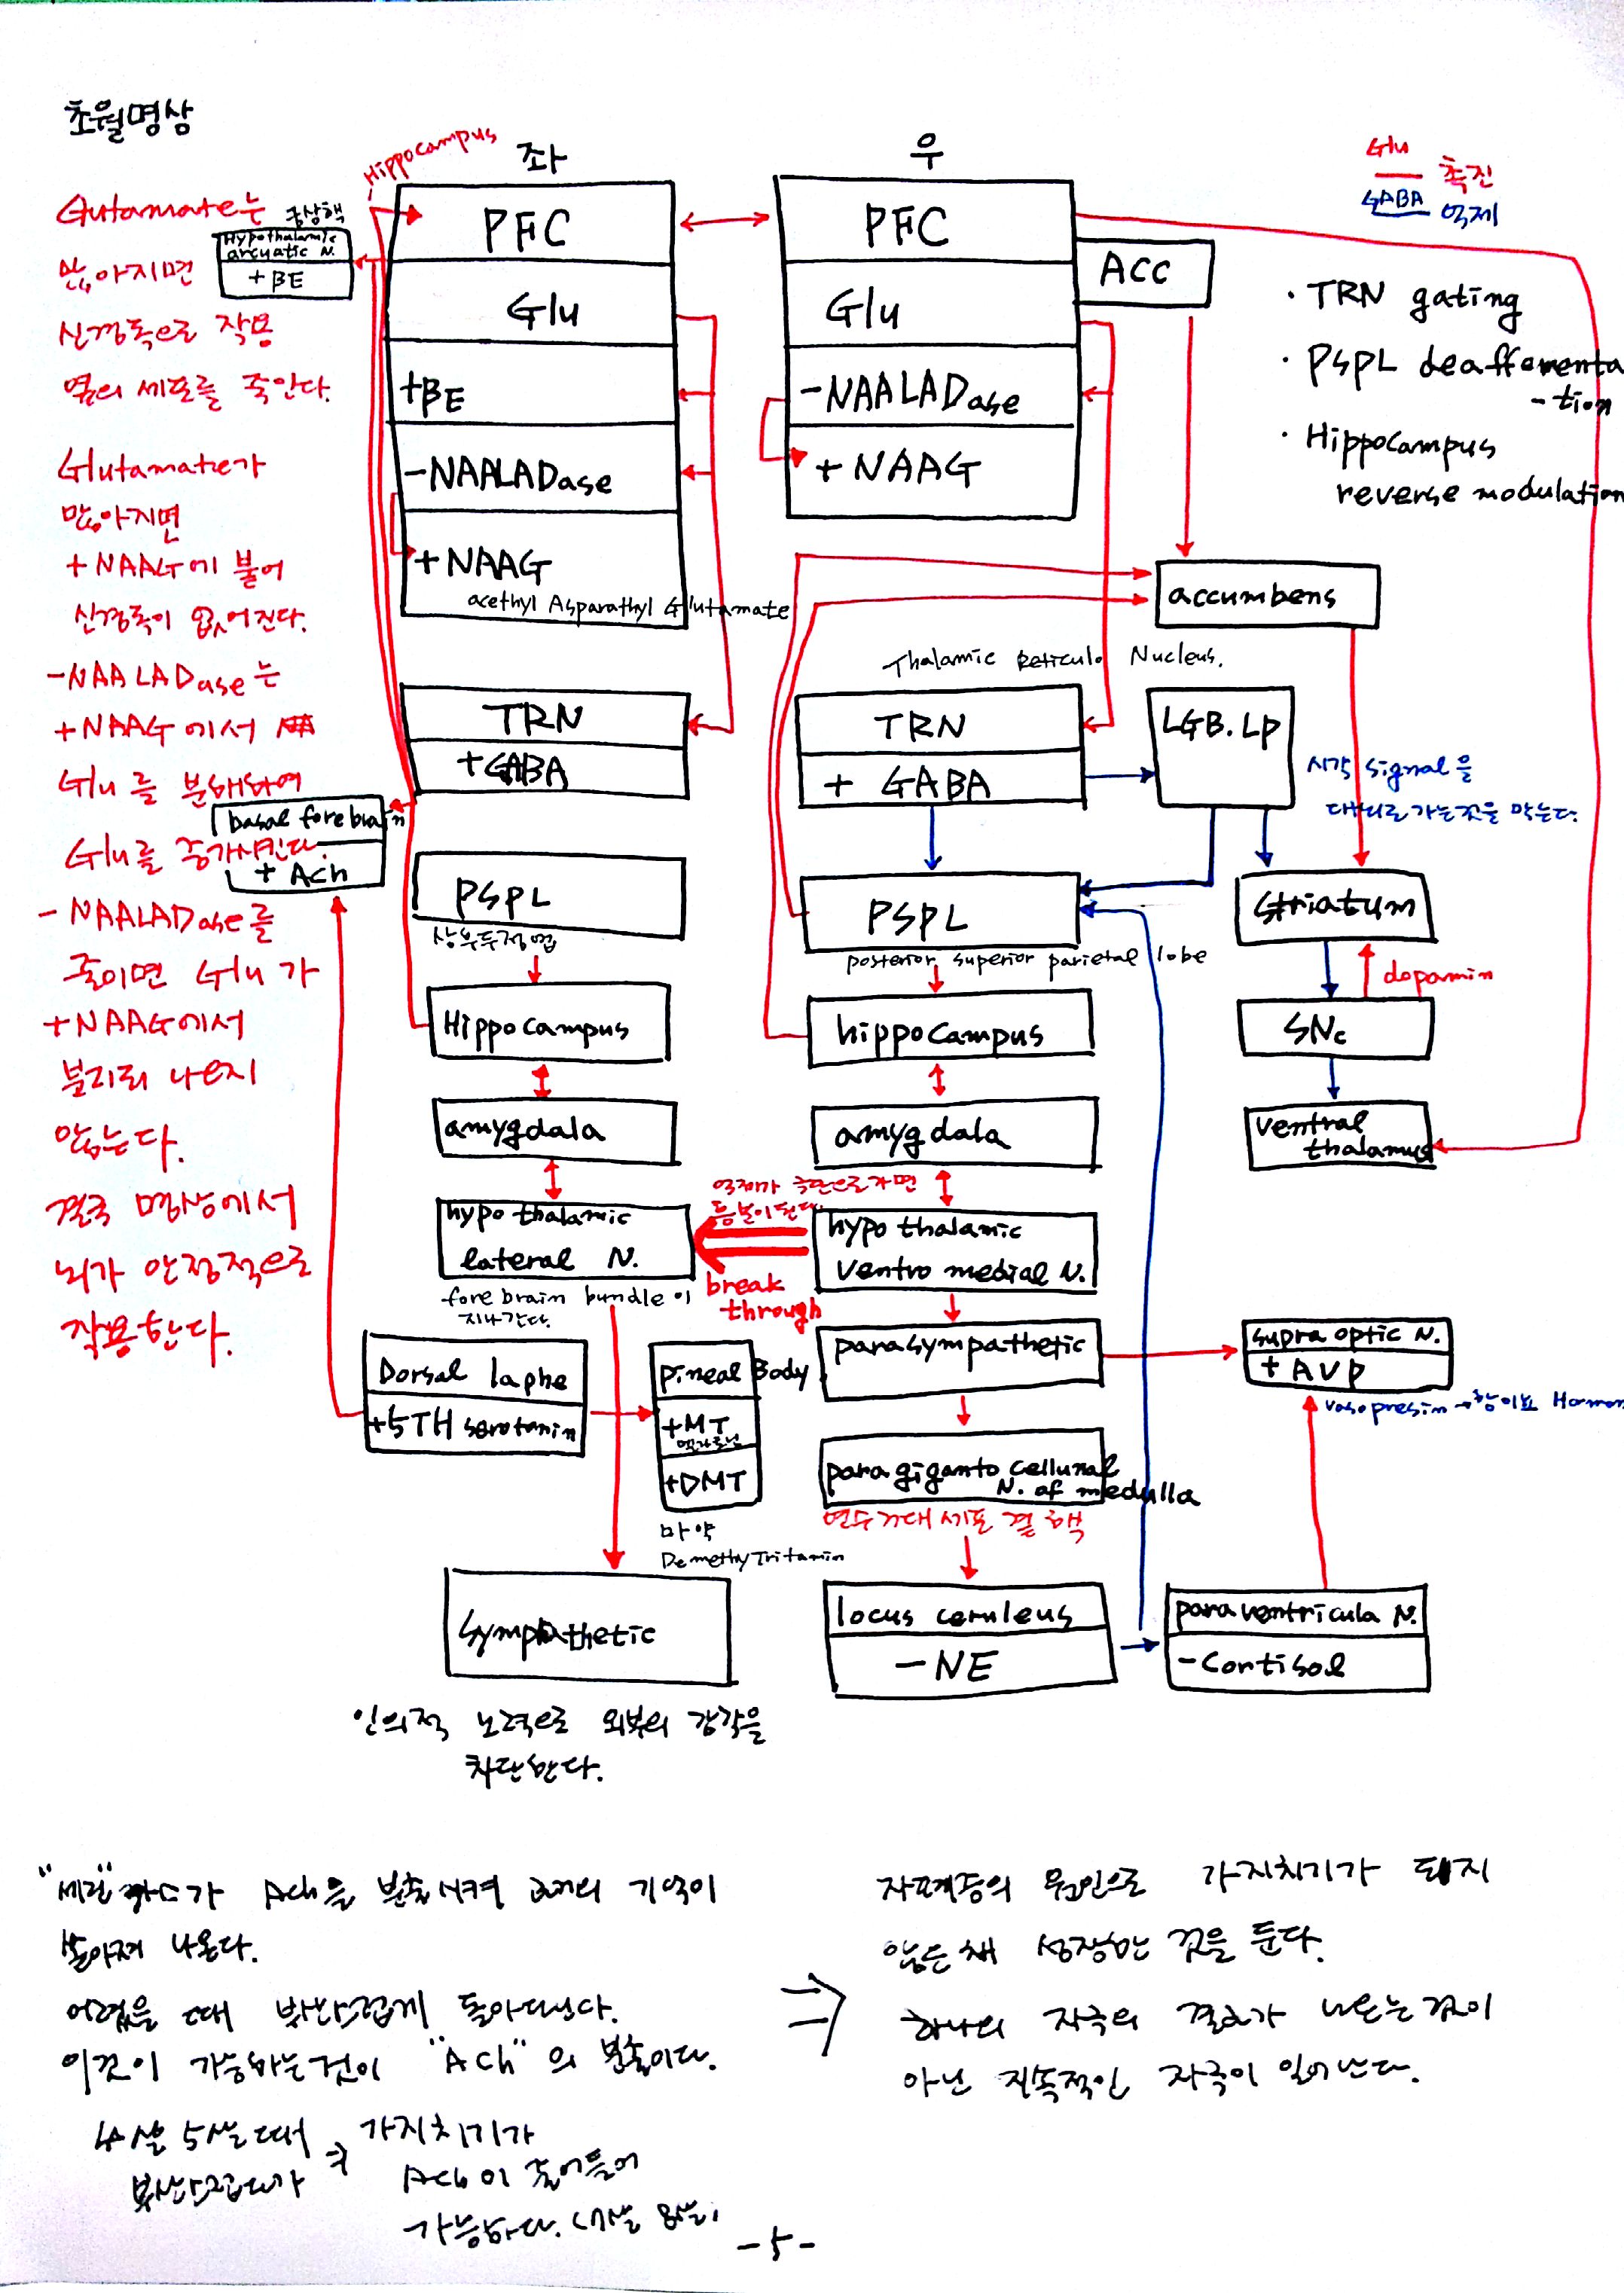 초월명상
Glutamate는
많아지면
신경독으로 작용
옆의 세포를 죽인다.
Glutamate가
많아지면
+NAAG에 붙어
신경독이 없어진다.
-NAALADase는
+NAAG에서
Glu를 분해하여
Glu를 증가시킨다.
-NAALADase를
줄이면 Glu가
+NAAG에서
분리되 나오지
않는다.
결국 명상에서
뇌가 안정적으로
작용한다.
궁상핵
Hypothalamic
arcuatic N.
+BE
basal forebrain
+ Ach
Hippocampus
좌
PFC
Glu
+BE
-NAALADase
+NAAG
acethyl Asparathyl Glutamate
TRN
+GABA
PSPL
상부두정엽
Hippocampus
amygdala
hypothalamic
lateral N.
fore brain bundle이
지나간다.
Dorsal laphe
+5TH serotonin
pineal Body
+MT
멜라토닌
+DMT
마약
DemethyTritamin
sympathetic
인의적 노력으로 외부의 감각을
차단한다.
우
PFC
ACC
Glu
-NAALADase
+NAAG
accumbens
Thalamic Reticulo Nucleus.
TRN
+ GABA
LGB.LP
시각 signal을
대뇌로 가는것을 막는다.
PSPL
posterior superior parietal lobe
striatum
dopamin
hippocampus
SNc
amygdala
ventral
thalamus
억제가 극단으로가면
흥분이된다.
break
through
hypothalamic
ventro medial N.
parasympathetic
supra optic N.
+ AVP
vasopresin → 항이뇨 Hormon
paragiganto cellunal
N. of medulla
연수 거대 세포 곁 핵
locus ceruleus
-NE
paraventricula N.
-Cortisol
Glu
촉진
GABA
억제
· TRN gating
· PSPL deafferenta
-tion
· Hippocampus
reverse modulation
Ach을 분출시켜 과거의 기억이
쏟아져 나온다.
어렸을 때 부산스럽게 돌아다닌다.
이것이 가능하는것이 "Ach"의 분출이다.
4살 5살때 ⇒ 가지치기가
부산스럽다가
Ach이 줄어들어
가능하다. (7살 8살)
⇒
자폐증의 원인으로 가지치기가 되지
않은채 성장한 것을 둔다.
하나의 자극의 결과가 나오는것이
아닌 지속적인 자극이 일어난다.
-5-